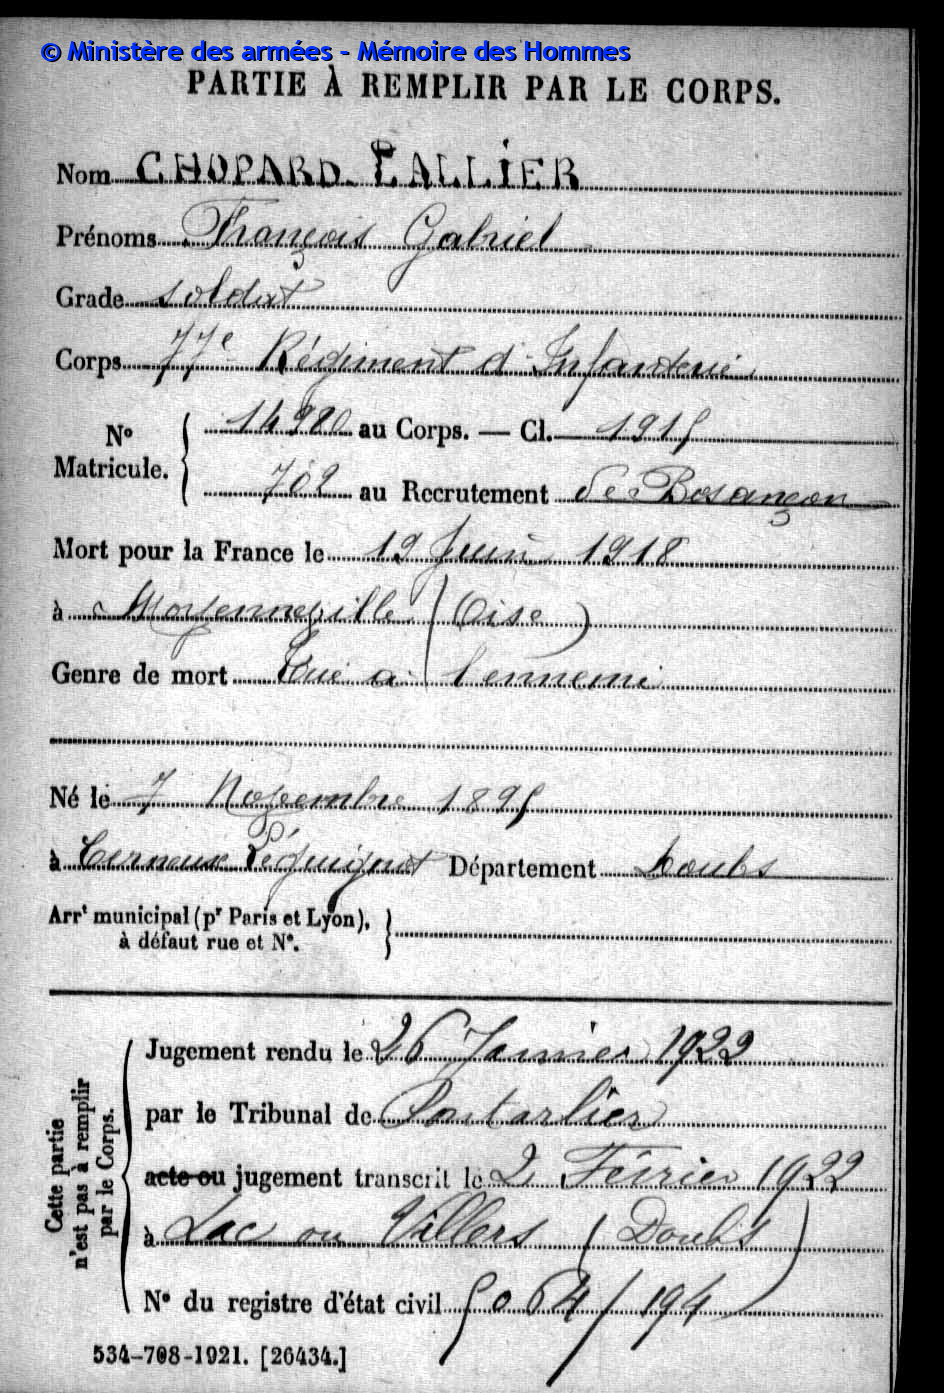 © Ministère des armées - Mémoire des Hommes
PARTIE À REMPLIR PAR LE CORPS.
Nom CHOPARD-LALLIER
Prénoms François Gabriel
Grade soldat
Corps 77e Régiment d'Infanterie
No Matricule. 14980 au Corps. — Cl. 1915
702 au Recrutement de Besançon
Mort pour la France le 19 Juin 1918
à Moyenneville (Oise)
Genre de mort Tué à l'ennemi
Né le 7 Novembre 1895
à Cerneux Péquignot Département Doubs
Arrt municipal (pr Paris et Lyon), à défaut rue et No.
Cette partie n'est pas à remplir par le Corps.
Jugement rendu le 26 Janvier 1922
par le Tribunal de Pontarlier
acte ou jugement transcrit le 2 Février 1922
à Lac ou Villers (Doubs)
No du registre d'état civil 5064/194
534-708-1921. [26434.]